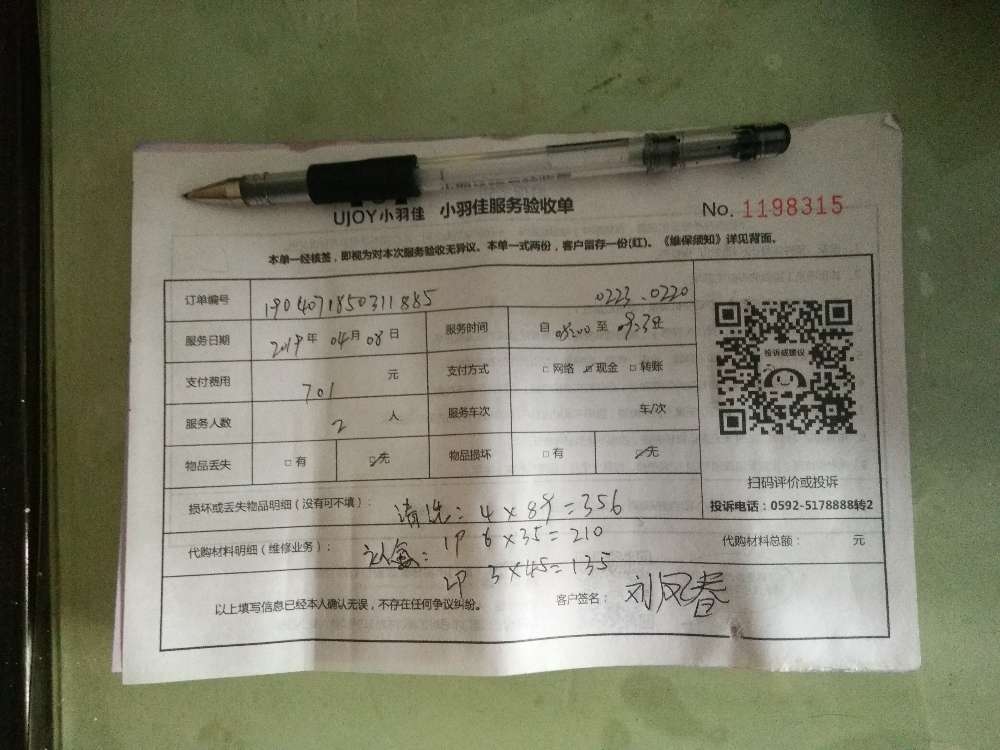 UJOY小羽佳 小羽佳服务验收单 No. 1198315
本单一经核签，即视为对本次服务验收无异议。本单一式两份，客户留存一份(红)。《维保须知》详见背面。
订单编号 1904071850311885 0223、0220
服务日期 2019年 04月 08日 服务时间 自 08:00 至
支付费用 701 元 支付方式 □网络 ☑现金 □转账
服务人数 2 人 服务车次 车/次
物品丢失 □有 ☑无 物品损坏 □有 ☑无
投诉或建议
扫码评价或投诉
投诉电话：0592-5178888转2
损坏或丢失物品明细（没有可不填）： 清洗：4×89=356
代购材料明细（维修业务）： 1P 6×35=210 代购材料总额： 元
2P 3×45=135
以上填写信息已经本人确认无误，不存在任何争议纠纷。 客户签名： 刘凤春